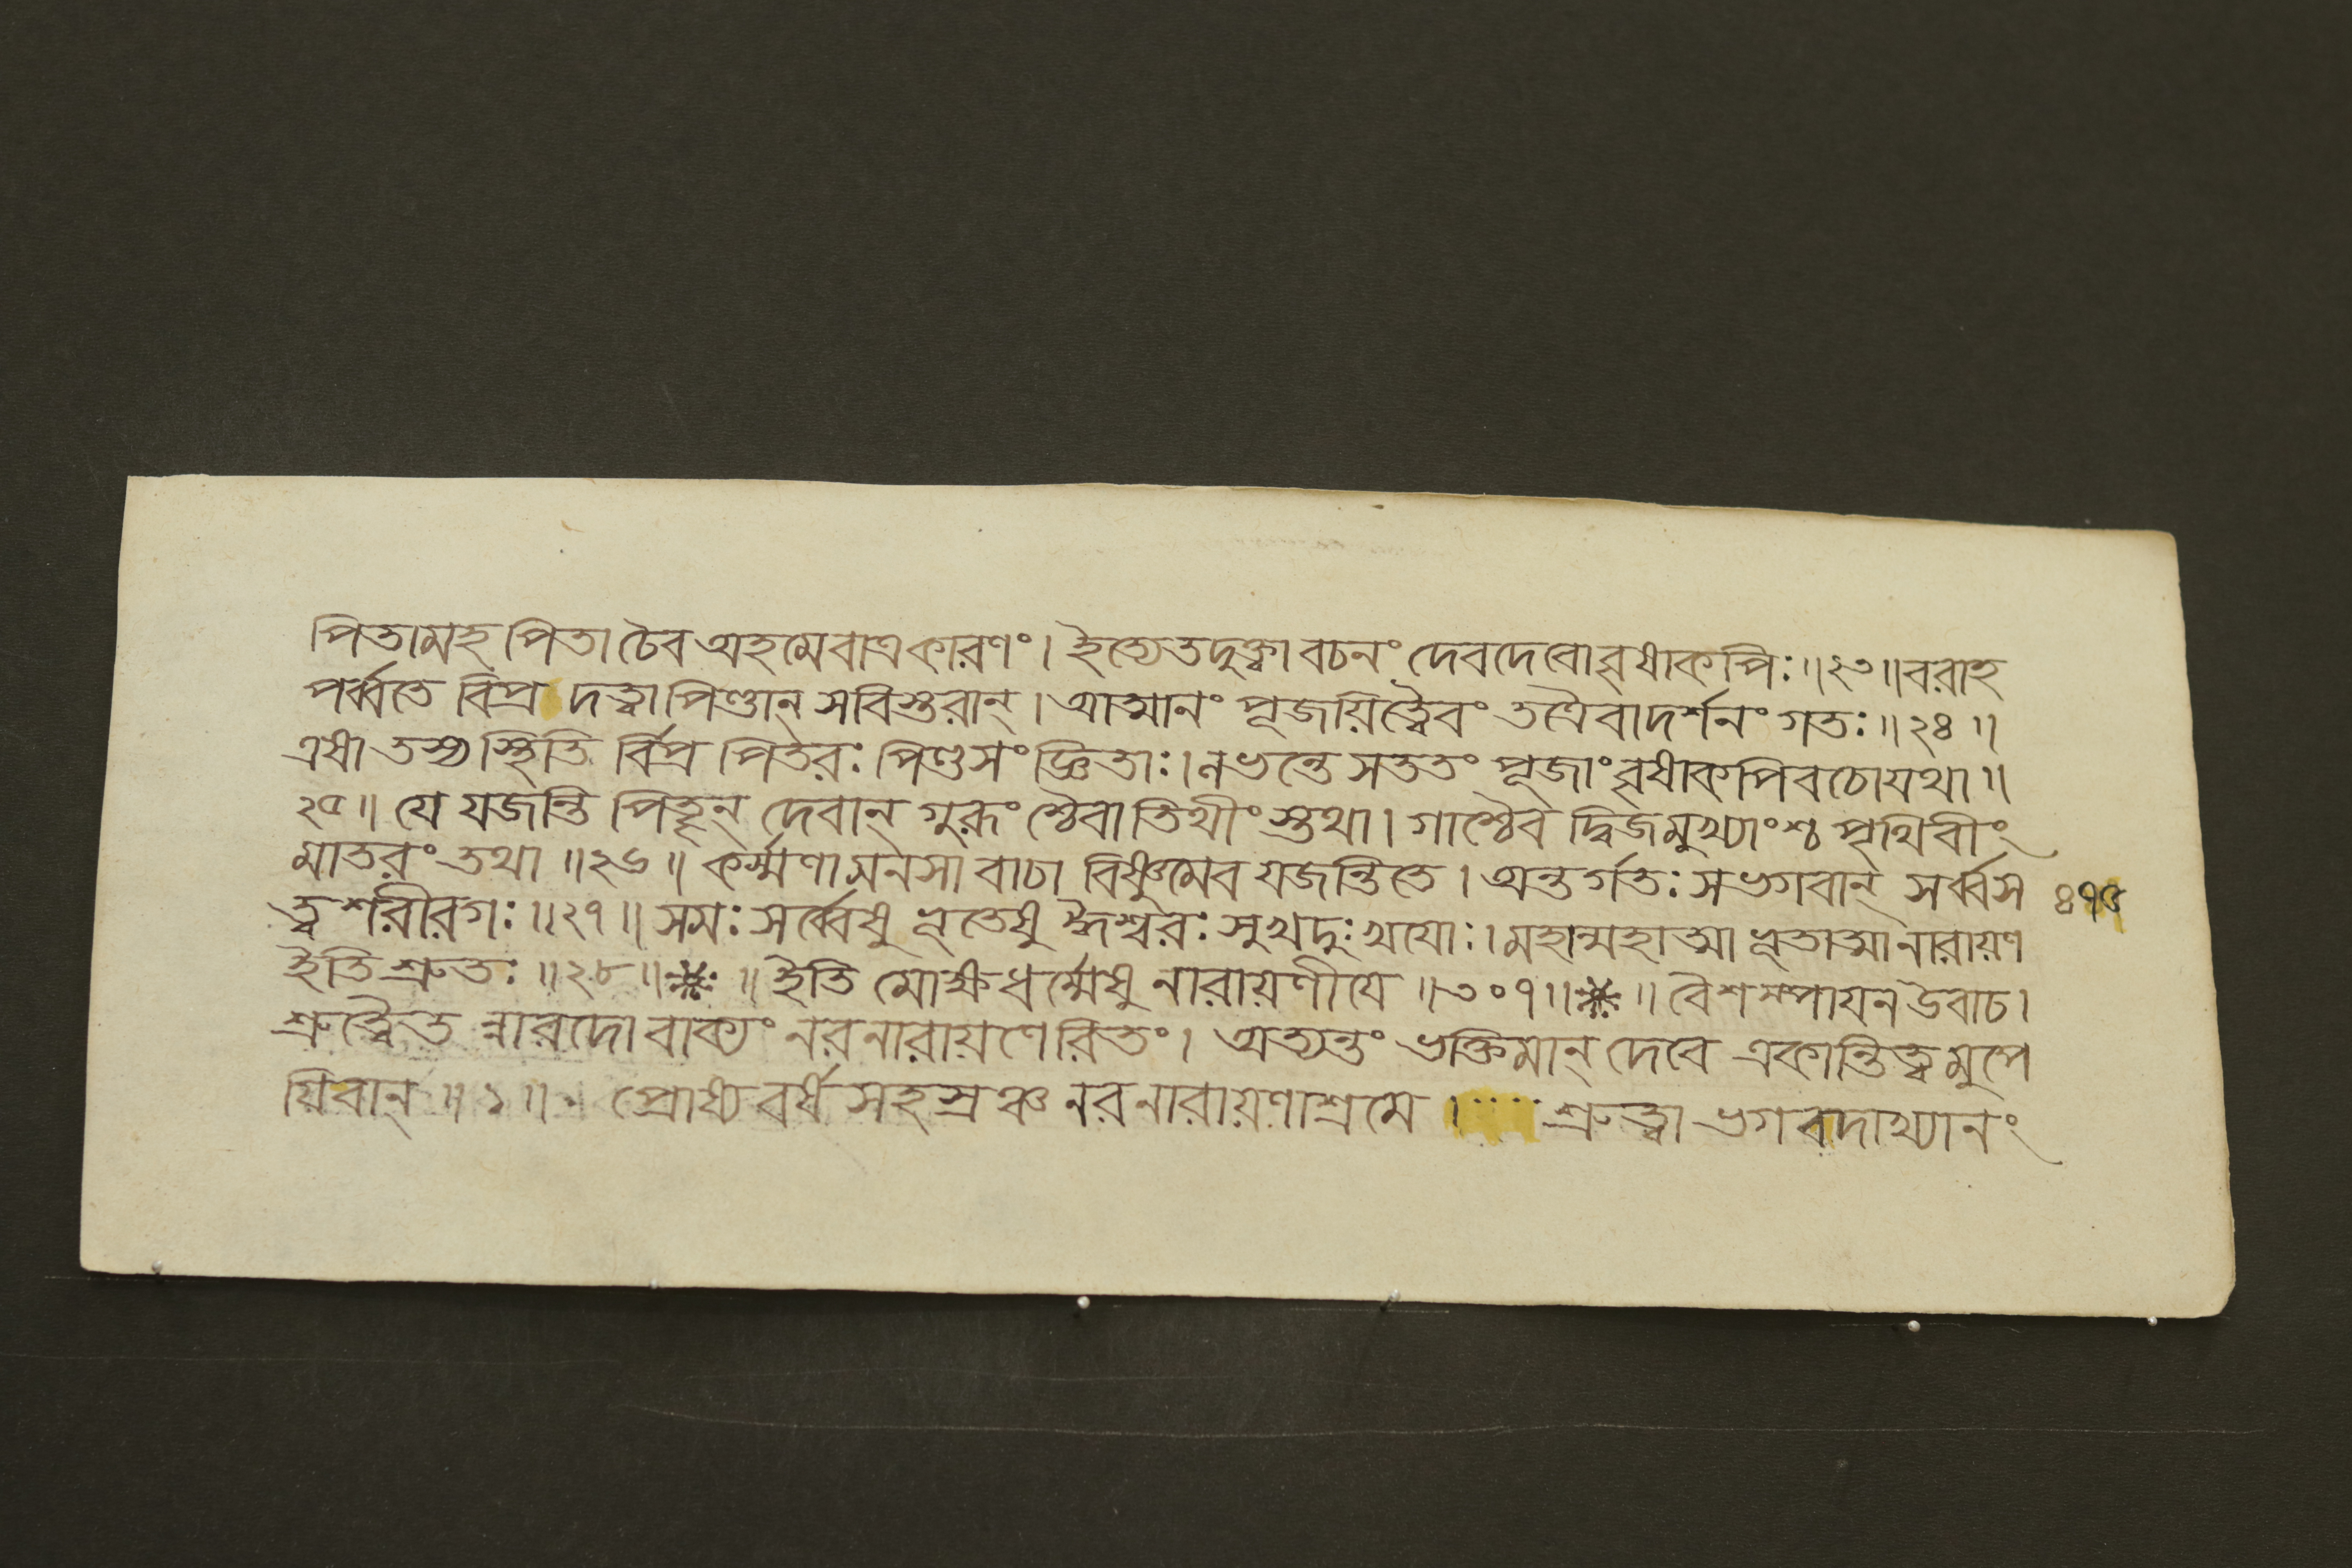 পিতামহ পিতা চৈব অহমেবাত্রকারণং। ইত্যেতদুক্ত্বা বচনং দেবদেবো বৃষাকপিঃ॥২৩॥বরাহ
পর্ব্বতে বিপ্র দত্ত্বা পিণ্ডান্ সবিস্তরান্। আত্মানং পূজয়িত্বৈবং তত্রৈবাদর্শনং গতঃ॥২৪॥
এষা তস্য স্থিতি র্বিপ্র পিতরঃ পিণ্ডসংজ্ঞিতাঃ। লভন্তে সততং পূজাং বৃষাকপিবচো যথা॥
২৫॥ যে যজন্তি পিতৄন্ দেবান্ গুরূংশ্চৈবাতিথীংস্তথা। গাশ্চৈব দ্বিজমুখ্যাংশ্চ পৃথিবীং
মাতরং তথা॥২৬॥ কর্ম্মণা মনসা বাচা বিষ্ণুমেব যজন্তি তে। অন্তর্গতঃ স ভগবান্ সর্ব্বস ৪৭৫
ত্ত্বশরীরগঃ॥২৭॥ সমঃ সর্ব্বেষু ভূতেষু ঈশ্বরঃ সুখদুঃখযোঃ। মহান্মহাত্মা ভূতাত্মা নারায়ণ
ইতি শ্রুতঃ॥২৮॥ ॥ ইতি মোক্ষধর্ম্মেষু নারায়ণীযে॥৩০৭॥ ॥ বৈশম্পাযন উবাচ।
শ্রুত্বৈত ন্নারদো বাক্যং নরনারায়ণেরিতং। অত্যন্তং ভক্তিমান্ দেবে একান্তিত্বমুপে
য়িবান্॥১॥ প্রোষ্য বর্ষসহস্রঞ্চ নরনারায়ণাশ্রমে। শ্রুত্বা ভগবদাখ্যানং